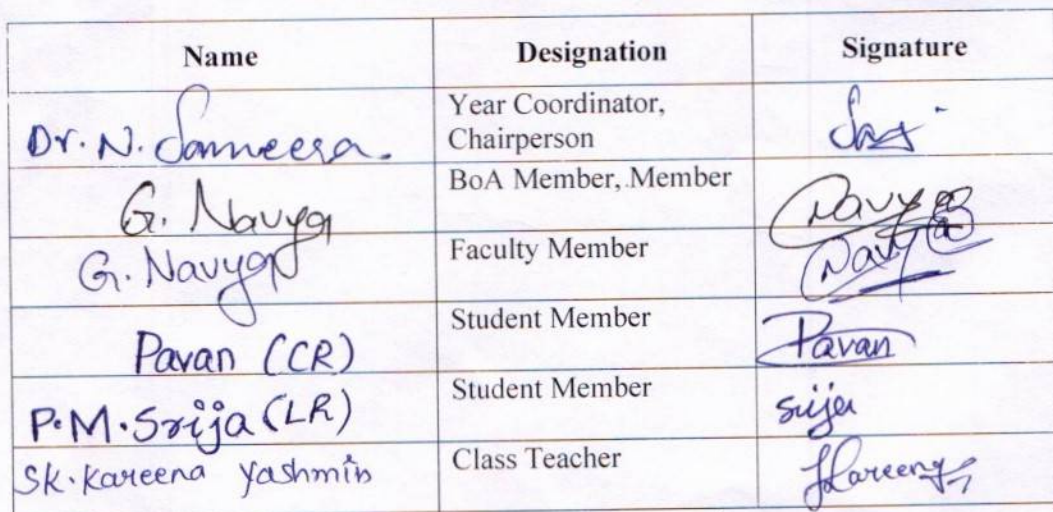 Name Designation Signature
Dr. N. Sameera. Year Coordinator,
Chairperson
G. Navya BoA Member, Member Navya
G. Navya Faculty Member Navya
Pavan (CR) Student Member Pavan
P.M.Srija (LR) Student Member srija
SK. Kareena Yashmin Class Teacher